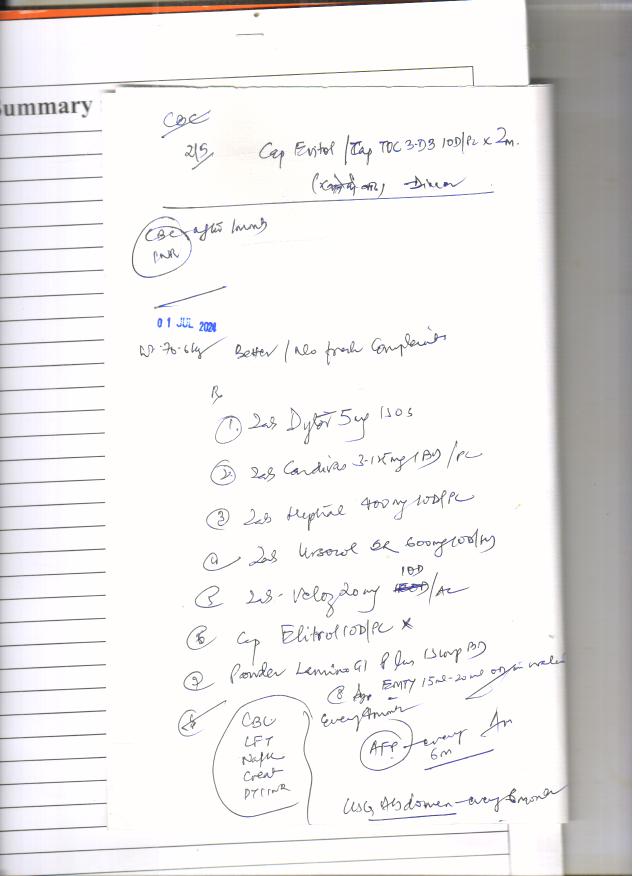 Summary
CBC
2/5 Cap Evitol / Cap TOC 3-D3 1OD/PC x 2m.
CBC - after 1 month
INR
01 JUL 2024
Wt-70.6kg Better / No fresh Complaints
Rx
1. Tab Dytor 5mg 1SOS
2. Tab Cardivas 3.125mg 1BD/PC
3 Tab Heptral 400mg 1OD/PC
4 Tab Ursocol SR 600mg 1OD/
5 Tab - Veloz 20mg 1OD/AC
6 Cap Elitrol 1OD/PC x
7 Powder Lamino G1 Plus 1Scoop BD
8 Syp EMTY 15ml-20ml water
CBC
LFT
Na/K
Creat
PT/INR
Every
AFP - every 6m
USG Abdomen - every 6 months